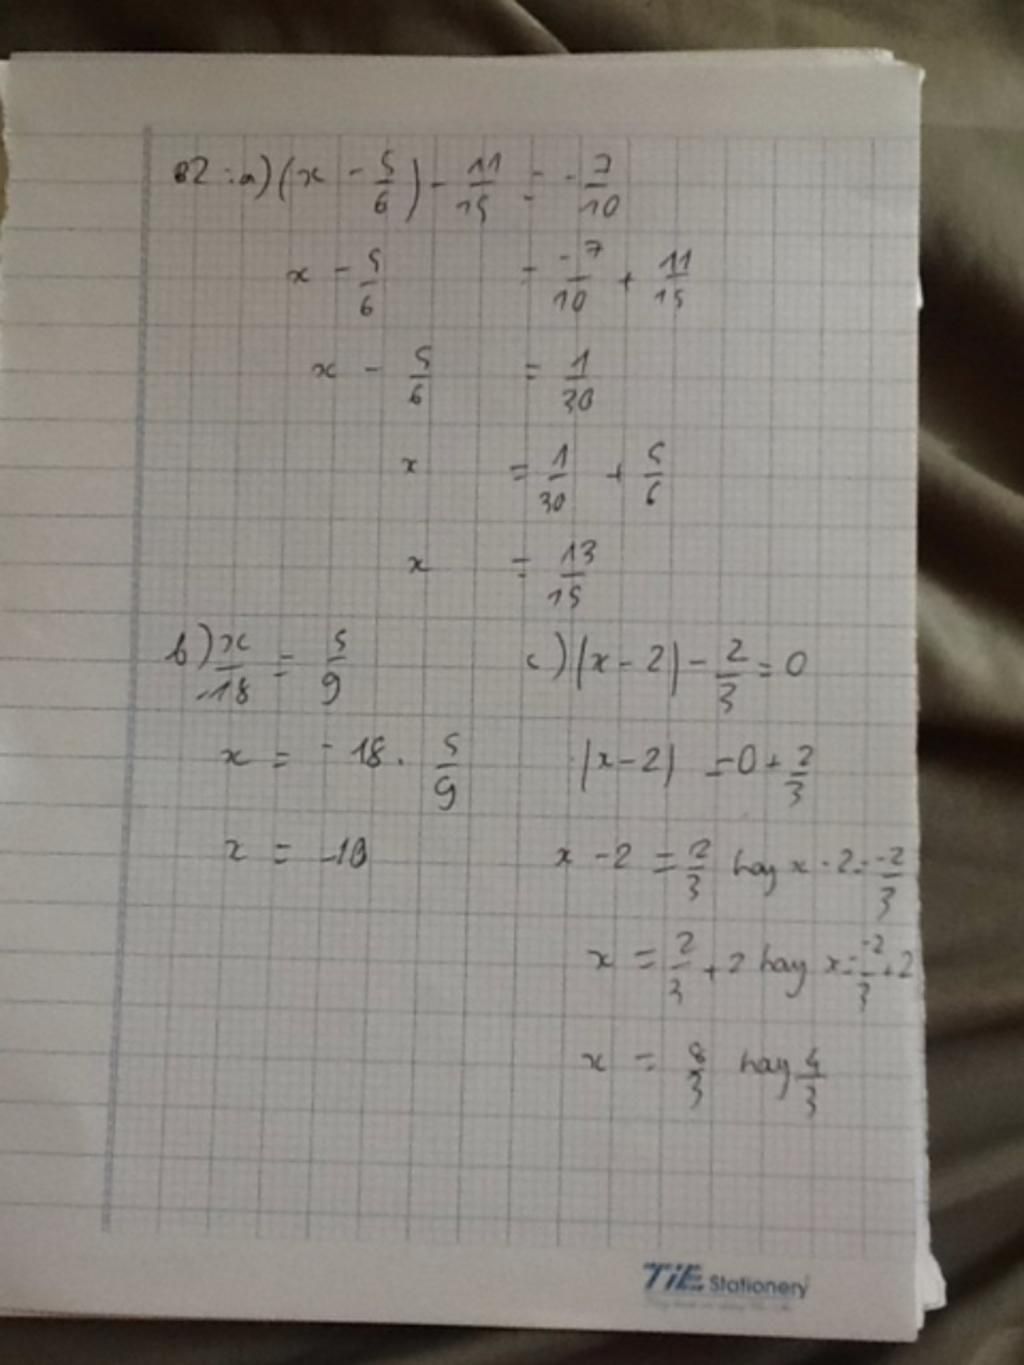 B2 : a) (x - 5/6) - 11/15 = -7/10
x - 5/6 = -7/10 + 11/15
x - 5/6 = 1/30
x = 1/30 + 5/6
x = 13/15
b) x/-18 = 5/9
x = -18 . 5/9
x = -10
c) |x - 2| - 2/3 = 0
|x - 2| = 0 + 2/3
x - 2 = 2/3 hay x - 2 = -2/3
x = 2/3 + 2 hay x = -2/3 + 2
x = 8/3 hay 4/3
TiE Stationery